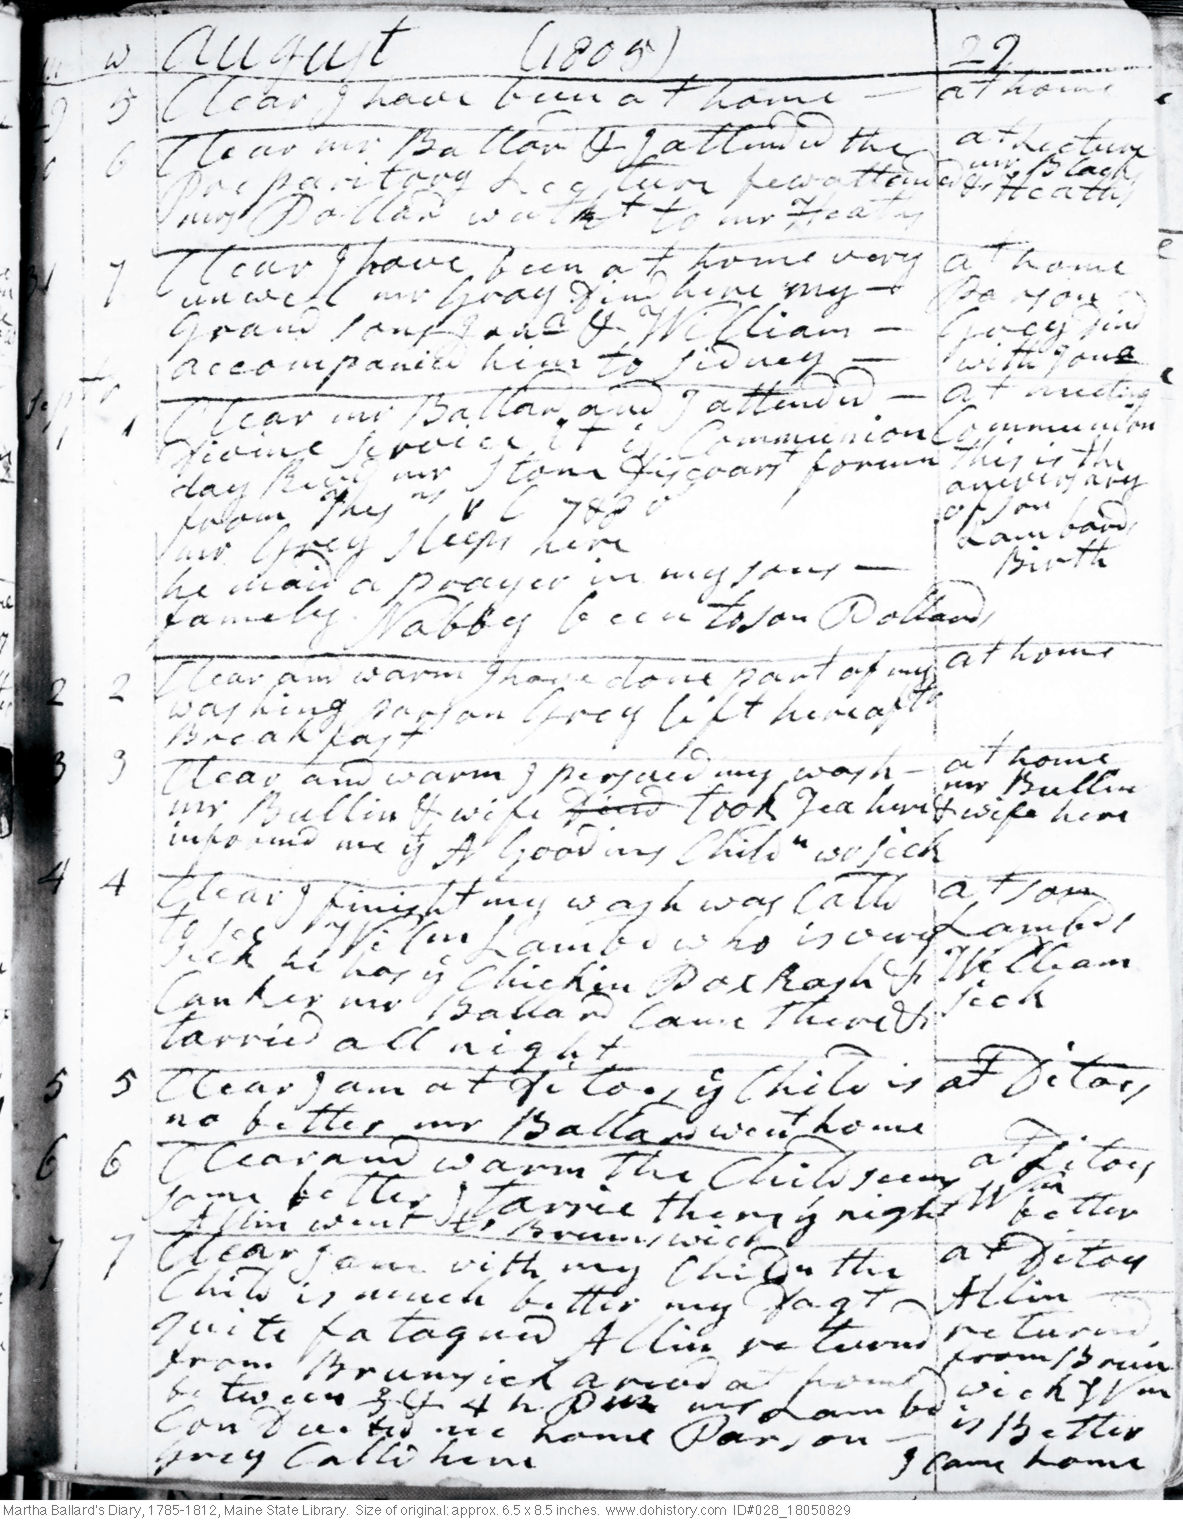 m w August (1805) 29
29 5 Clear I have been at home — at home
6 Clear mr Ballard & I attended the at Lecture
Preparitory Lecture few attended mr Black
mrs Dollard went to mr Heaths & Heaths
31 7 Clear I have been at home very at home
unwell mr Gray dind here my — Parson
Grand sons & William — Grey dind
accompanied him to Sidney — with Jona
Sept
1 1 Clear mr Ballard and I attended — at meeting
divine service it is Communion Communion
day Revd mr Stone discoarst forenn This is the
from Thes aniversary
mr Grey sleeps here of son
he maid a prayer in my sons — Lambards
famely. Nabby been to son Pollards Birth
2 2 Clear and warm I have done part of my at home
washing parson Grey left here aftr
Breakfast
3 3 Clear and warm I persued my wash — at home
mr Bullin & wife dind took Tea here mr Bullin
informd me ye A Goodins Childn wr sick & wife here
4 4 Clear I finisht my wash was Calld at son
to see Wilm Lambd who is very Lambds
sick he has ye Chickin Pox Rash & William
Canker mr Ballard Came there & sick
tarried all night
5 5 Clear I am at Ditoes ye Child is at Ditoes
no better mr Ballard went home
6 6 Clear and warm the Child seems at Ditoes
some better I tarrie there ys night Wm
Allin went to Brunswick better
7 7 Clear I am with my Childn the at Ditoes
Child is much better my Dagt Allin —
quite fatagued Allin returnd returnd
from Brunsick arivd at home from Brun
between 3 & 4 h Pm mr Lambd wick Wm
Conducted me home Parson — is Better
Grey Calld here I came home
Martha Ballard's Diary, 1785-1812, Maine State Library. Size of original: approx. 6.5 x 8.5 inches. www.dohistory.com ID#028_18050829